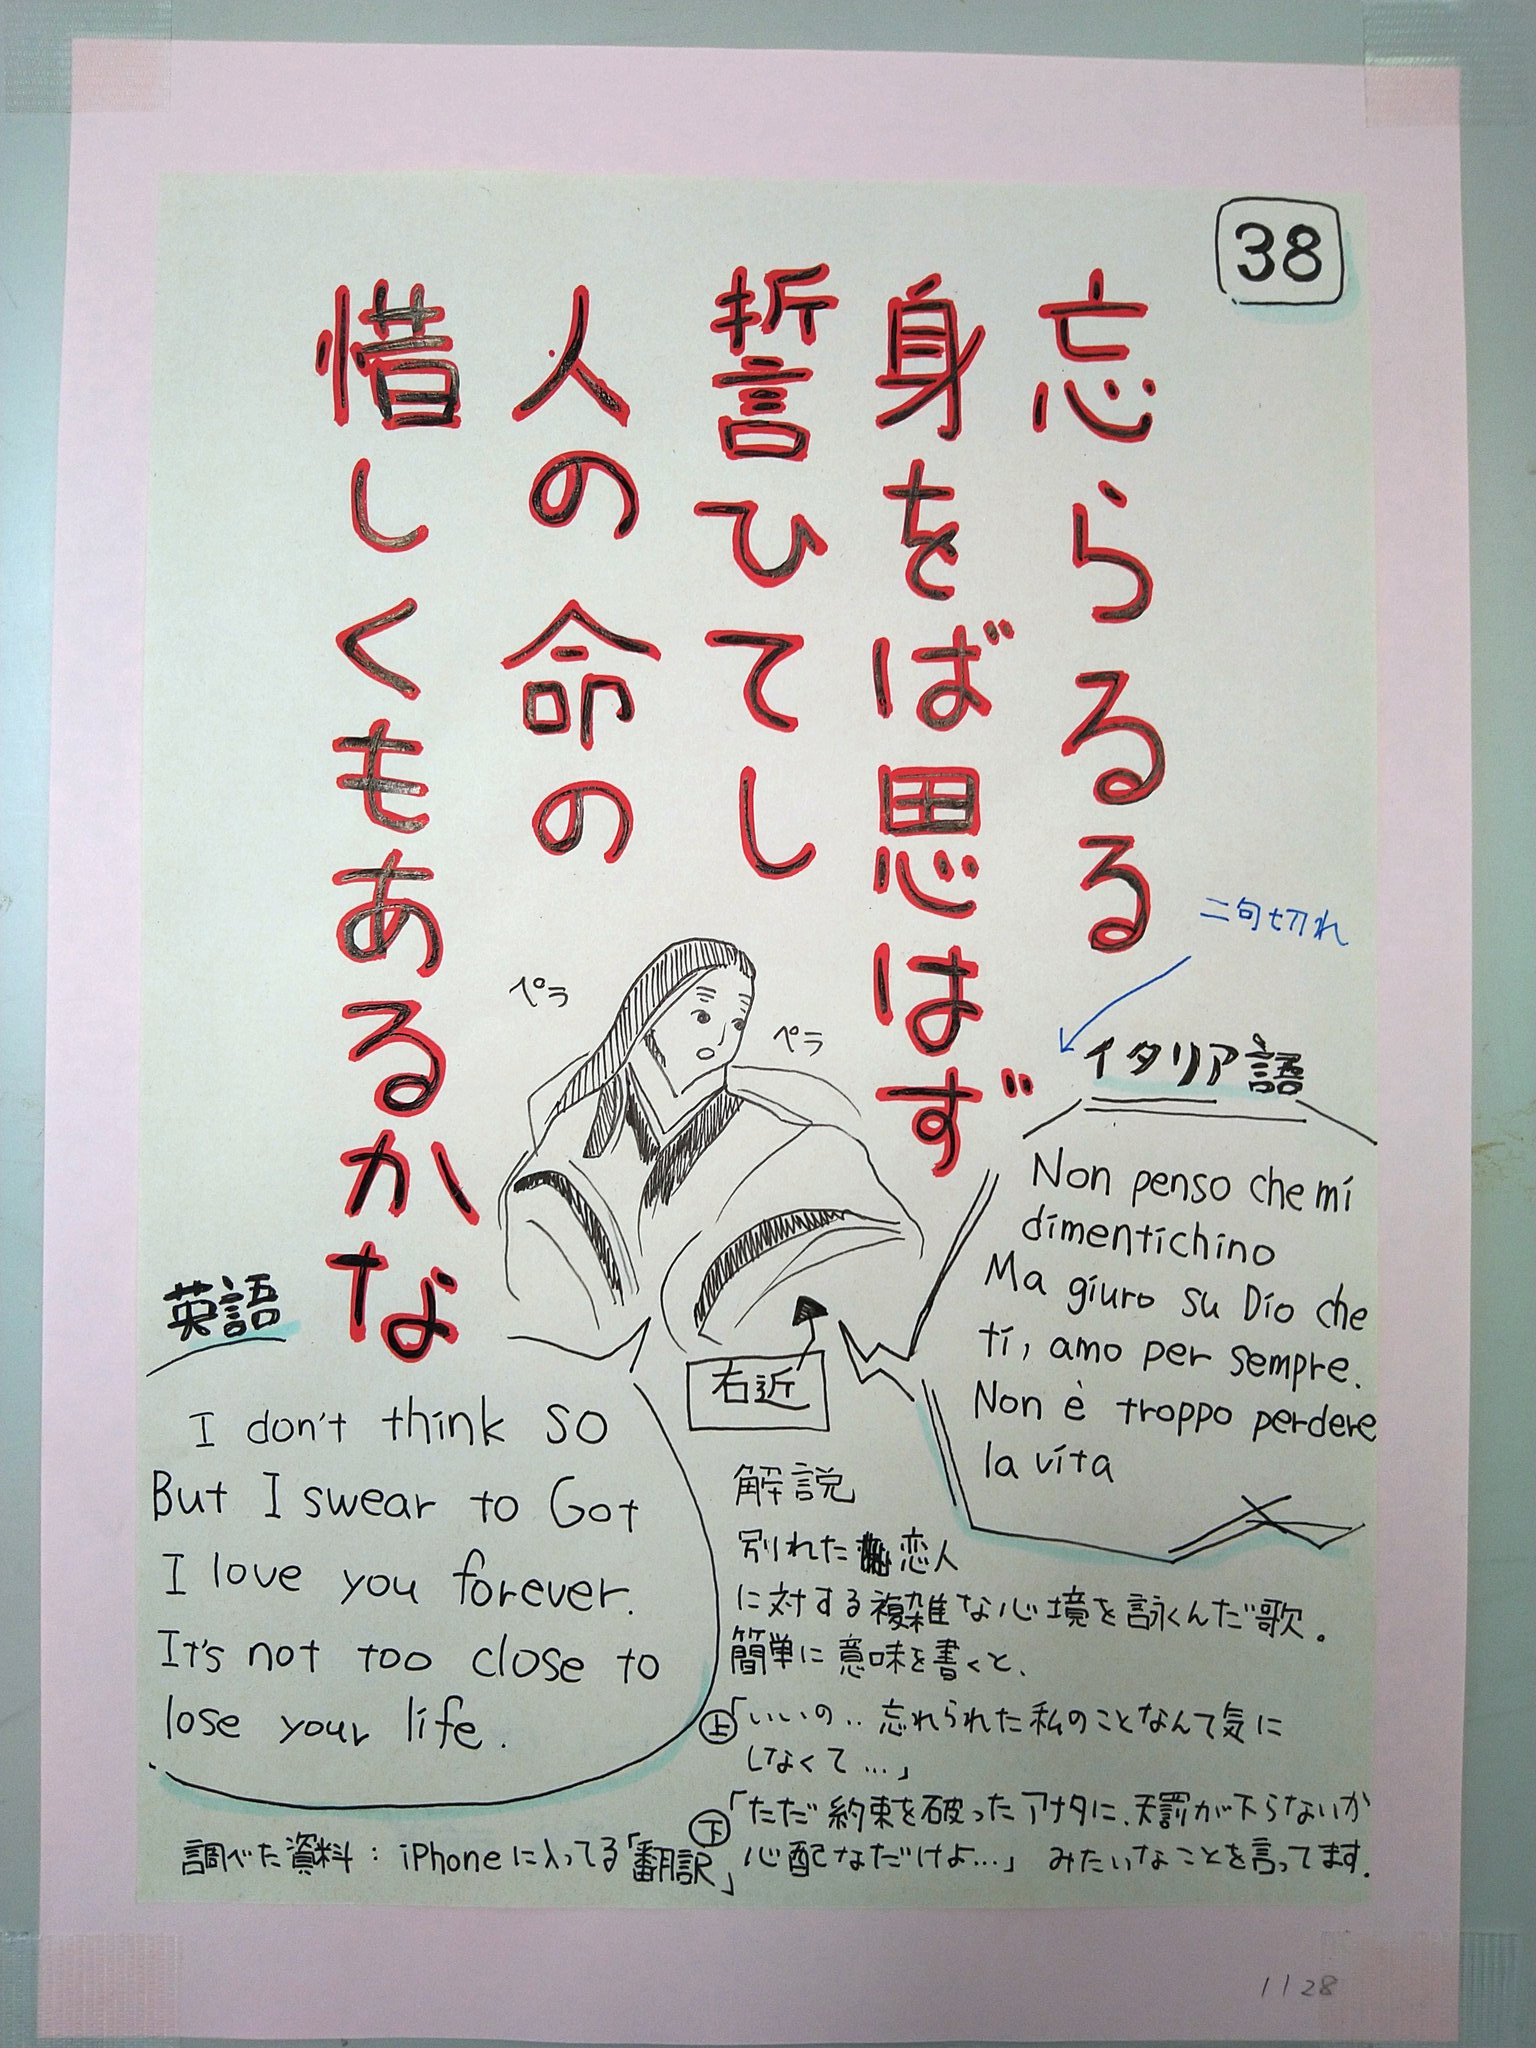 38
忘らるる
身をば思はず
誓ひてし
人の命の
惜しくもあるかな
二句切れ
ペラ
ペラ
イタリア語
Non penso che mi
dimentichino
Ma giuro su Dio che
ti, amo per sempre.
Non è troppo perdere
la vita
右近
英語
I don't think so
But I swear to Got
I love you forever.
It's not too close to
lose your life.
解説
別れた恋人
に対する複雑な心境を詠くんだ歌。
簡単に意味を書くと、
上「いいの‥忘れられた私のことなんて気に
しなくて…」
下「ただ約束を破ったアナタに、天罰が下らないか
心配なだけよ…」 みたいなことを言ってます.
調べた資料:iPhoneに入ってる「翻訳」
1128